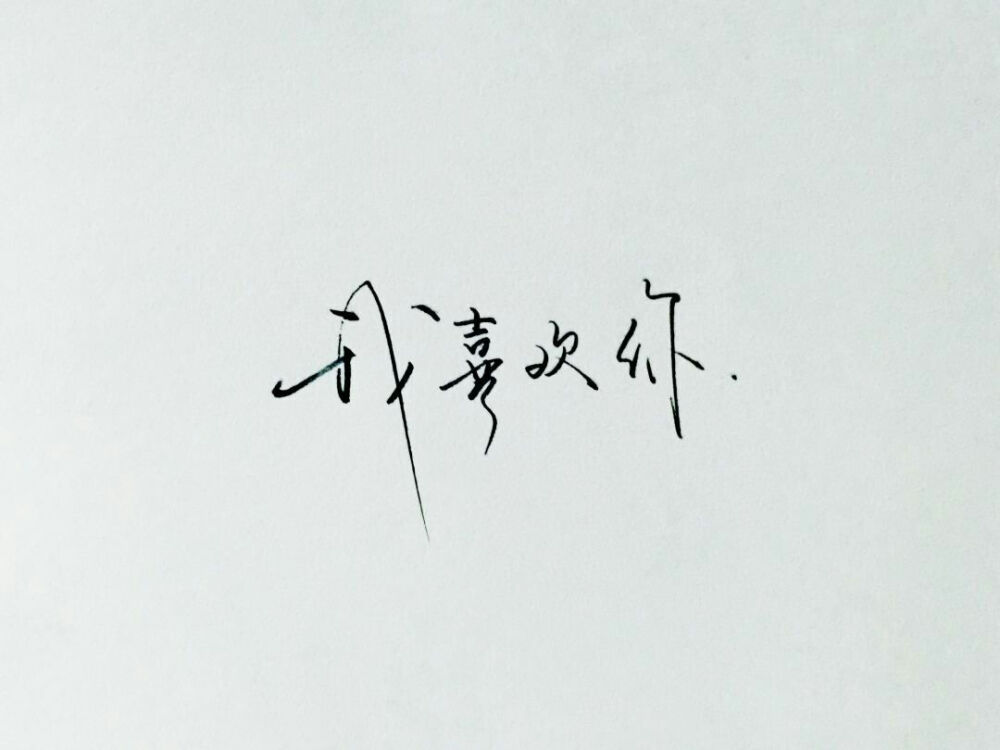 我喜欢你.